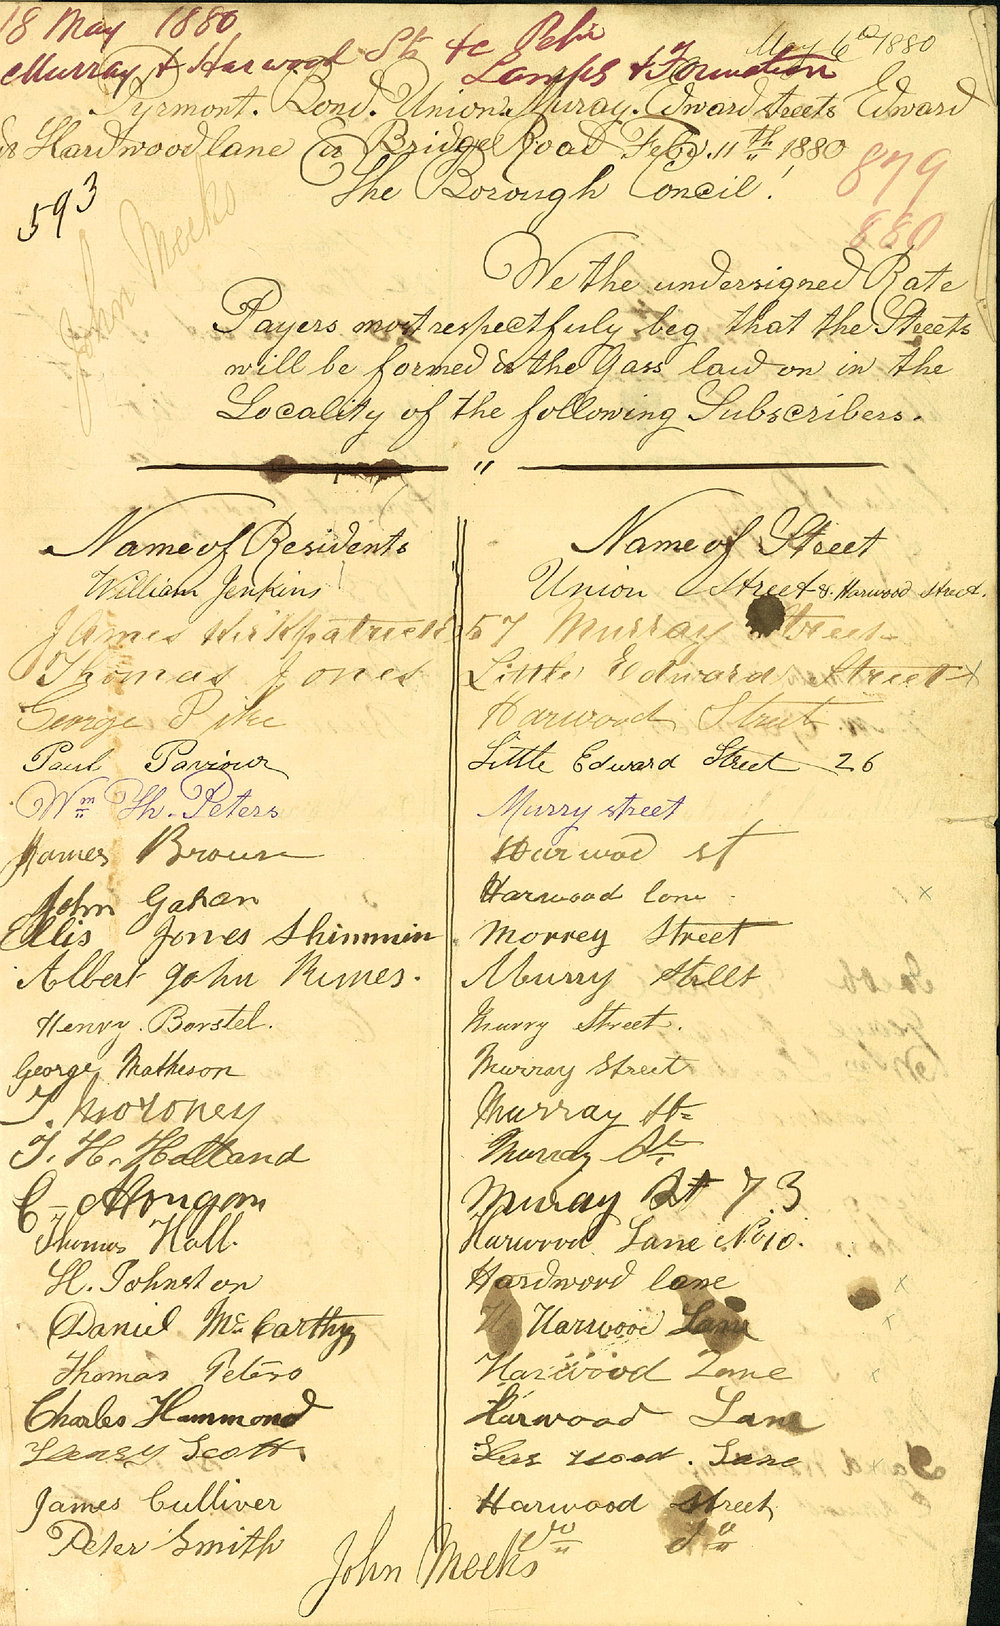 18 May 1880
May 6th 1880
Murray & Harwood Sts &c Petn
Lamps & Formation
Pyrmont. Bond. Union. Muray. Edward streets Edward
& Hardwood lane & Bridge Road Feby. 11th 1880
879
880
593
John Meeks
The Borough Concil!
We the undersigned Rate
Payers most respectfuly beg that the Streets
will be formed & the Gass laid on in the
Locality of the following Subscribers.
Name of Residents Name of Street
William Jenkins Union Street & Harwood Street.
James Kirkpatrick 57 Murray Street
Thomas Jones Little Edward Street x
George Pike Harwood Street
Paul Paviour Little Edward Street 26
Wm Th. Peters Murry street
James Brown Harwod st
John Gahan Harwood lane x
Ellis Jones Shimmin Morrey Street
Albert John Rimes. Murry Street
Henry. Borstel. Murry Street.
George Matheson Murray Street
T. Moroney Murray St
T. H. Holland Murray St
C Muray St 73
Thomas Hall. Harwood Lane No 10.
H. Johnston Hardwood lane x
Daniel McCarthy Harwood Lane x
Thomas Peters Harwood Lane x
Charles Hammond Harwood Lane
Scott Harwood. Lane x
James Culliver Harwood Street
Peter Smith do do
John Meeks